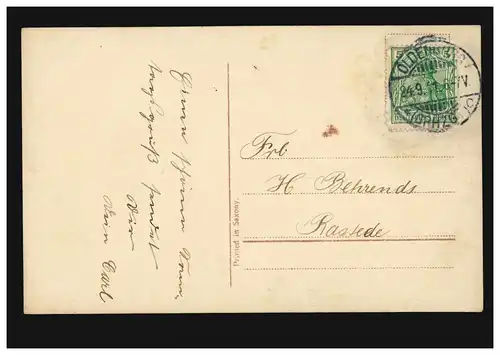 Einen schönen
sendet
Dir
Dein Carl
Printed in Saxony.
OLDENBURG
24.9.
Frl
H Behrends
Rastede